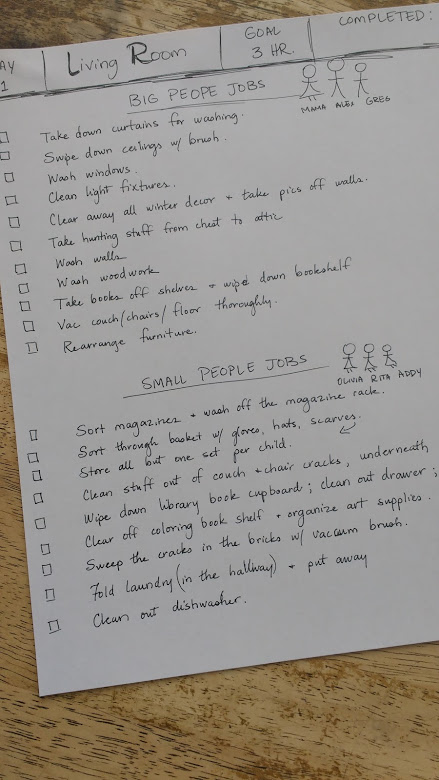 AY 1 | Living Room | GOAL 3 HR. | COMPLETED:
BIG PEOPE JOBS
MAMA ALEX GREG
Take down curtains for washing.
Swipe down ceilings w/ brush.
Wash windows.
Clean light fixtures.
Clear away all winter decor + take pics off walls.
Take hunting stuff from chest to attic
Wash walls
Wash woodwork
Take books off shelves + wipe down bookshelf
Vac couch/chairs/floor thoroughly.
Rearrange furniture.
SMALL PEOPLE JOBS
OLIVIA RITA ADDY
Sort magazines + wash off the magazine rack.
Sort through basket w/ gloves, hats, scarves.
Store all but one set per child.
Clean stuff out of couch + chair cracks, underneath
Wipe down library book cupboard; clean out drawer;
Clear off coloring book shelf + organize art supplies.
Sweep the cracks in the bricks w/ vacuum brush.
Fold laundry (in the hallway) + put away
Clean out dishwasher.